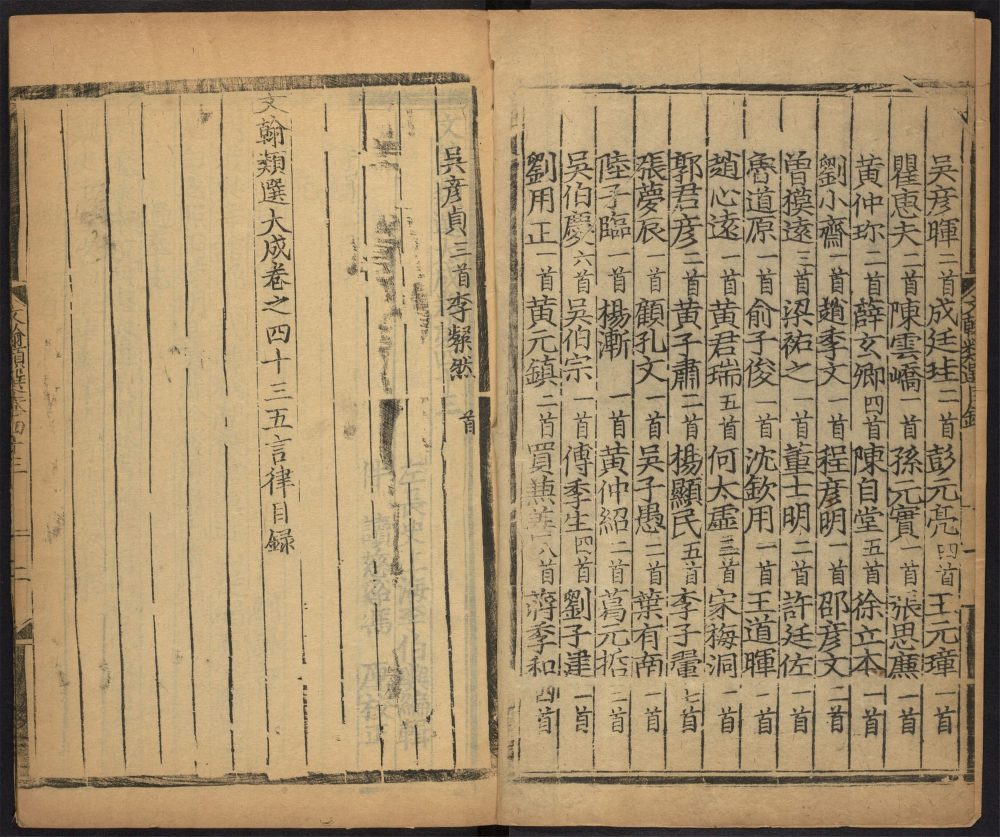 吳彦暉二首成廷珪二首彭元亮四首王元璋一首
瞿惠夫二首陳雲嶠一首孫元實一首張思㢘一首
黄仲珎二首薛玄卿四首陳自堂五首徐立本一首
劉小齋一首趙季文一首程彦明一首邵彦文二首
曽模遠三首梁祐之一首董士明二首許廷佐一首
魯道原一首俞子俊一首沈欽用一首王道暉一首
趙心遠一首黄君瑞五首何太虚三首宋梅洞一首
郭君彦二首黄子肅二首楊顯民五首李子翬七首
張夢辰一首顧孔文一首吳子愚二首葉有南一首
陸子臨一首楊漸一首黄仲紹二首葛元哲二首
吳伯慶六首吳伯宗一首傅季生四首劉子建一首
劉用正一首黄元鎮二首買首蒋季和四首
文翰類選目錄
吳彦貞三首李粲然首
文翰類選大成卷之四十三五言律目録
文翰類選卷四十三